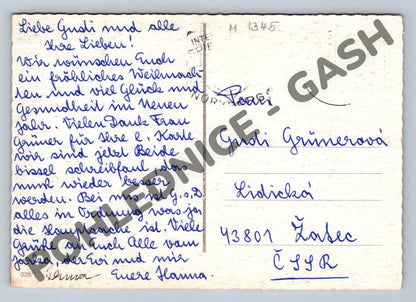 Liebe Gusti und alle
Ihre Lieben!
Wir wünschen Euch
ein fröhliches Weihnach-
ten und viel Glück und
Gesundheit im Neuen
Jahr. Vielen Dank Frau
Grüner für Ihre l. Karte
wir sind jetzt Beide
bissel schreibfaul, das
muß wieder besser
werden. Bei uns ist G.s.D
alles in Ordnung was ja
die Hauptsache ist. Viele
Grüße an Euch Alle vom
der Evi und mir
Eure Hanna.
M 1345
Gusti Grünerová
Lidická
43801 Žatec
ČSSR
POHLEDNICE - GASH